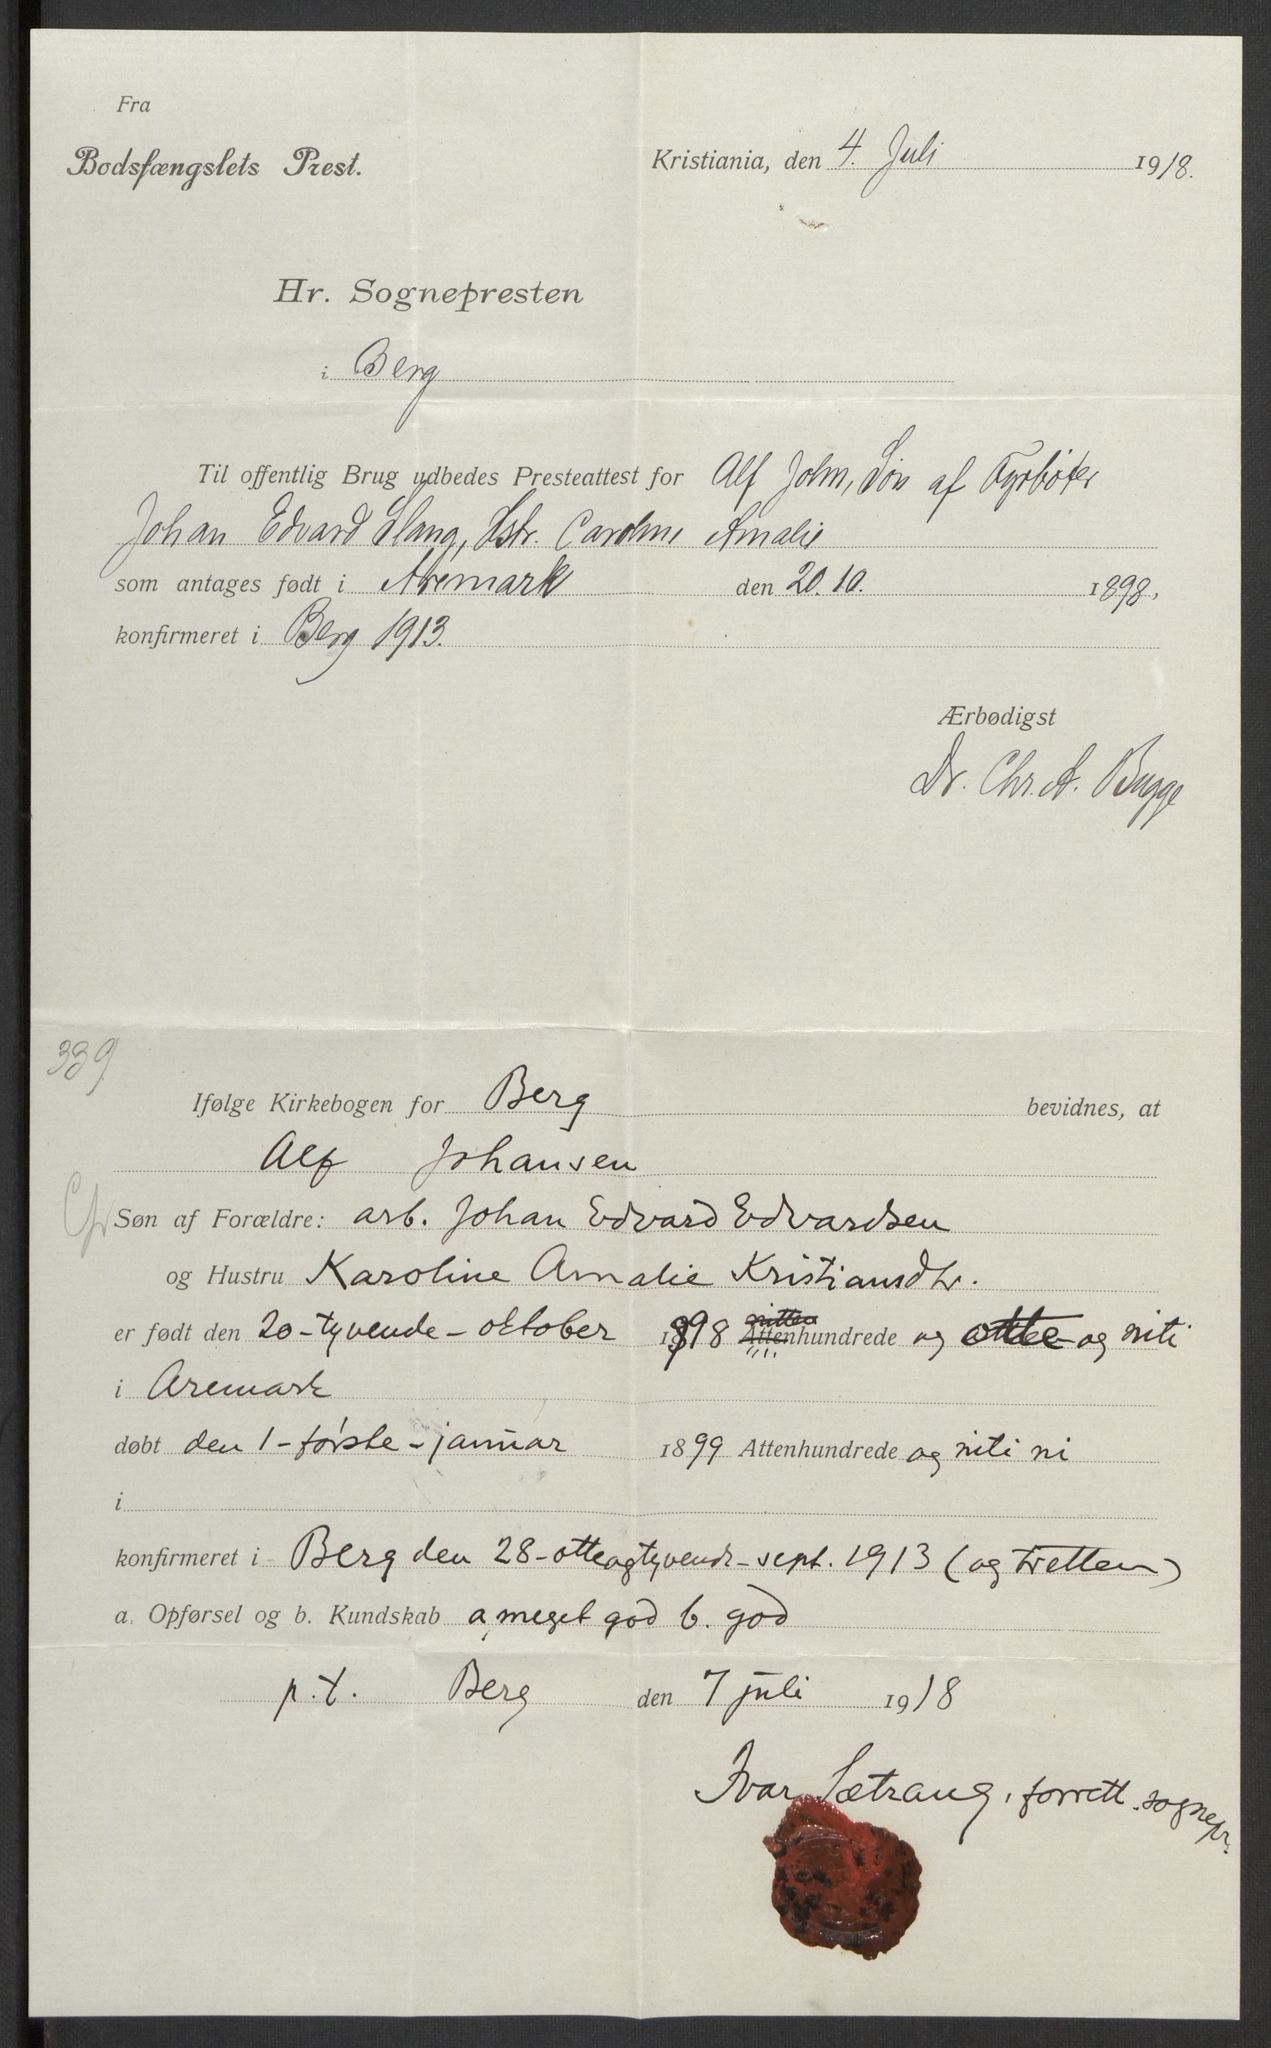 Fra
Bodsfængslets Prest.
Kristiania, den 4. Juli 1918.
Hr. Sognepresten
i Berg
Til offentlig Brug udbedes Presteattest for Alf John, Søn af Fyrbøter
Johan Edvard Slang, Hstr. Caroline Amalie
som antages født i Aremark den 20.10. 1898,
konfirmeret i Berg 1913.
Ærbødigst
Dr. Chr. A. Bugge
339
Ifølge Kirkebogen for Berg bevidnes, at
Alf Johansen
Søn af Forældre: arb. Johan Edvard Edvardsen
og Hustru Karoline Amalie Kristiansdtr.
nitten
er født den 20-tyvende-oktober 1898 Attenhundrede og otte og niti
i Aremark
døbt den 1-første-januar 1899 Attenhundrede og niti ni
i
konfirmeret i Berg den 28-otteogtyvende-sept. 1913 (og tretten)
a. Opførsel og b. Kundskab a, meget god b. god
p.t. Berg den 7 juli 1918
Ivar Sætrang, forrett. sognepr.